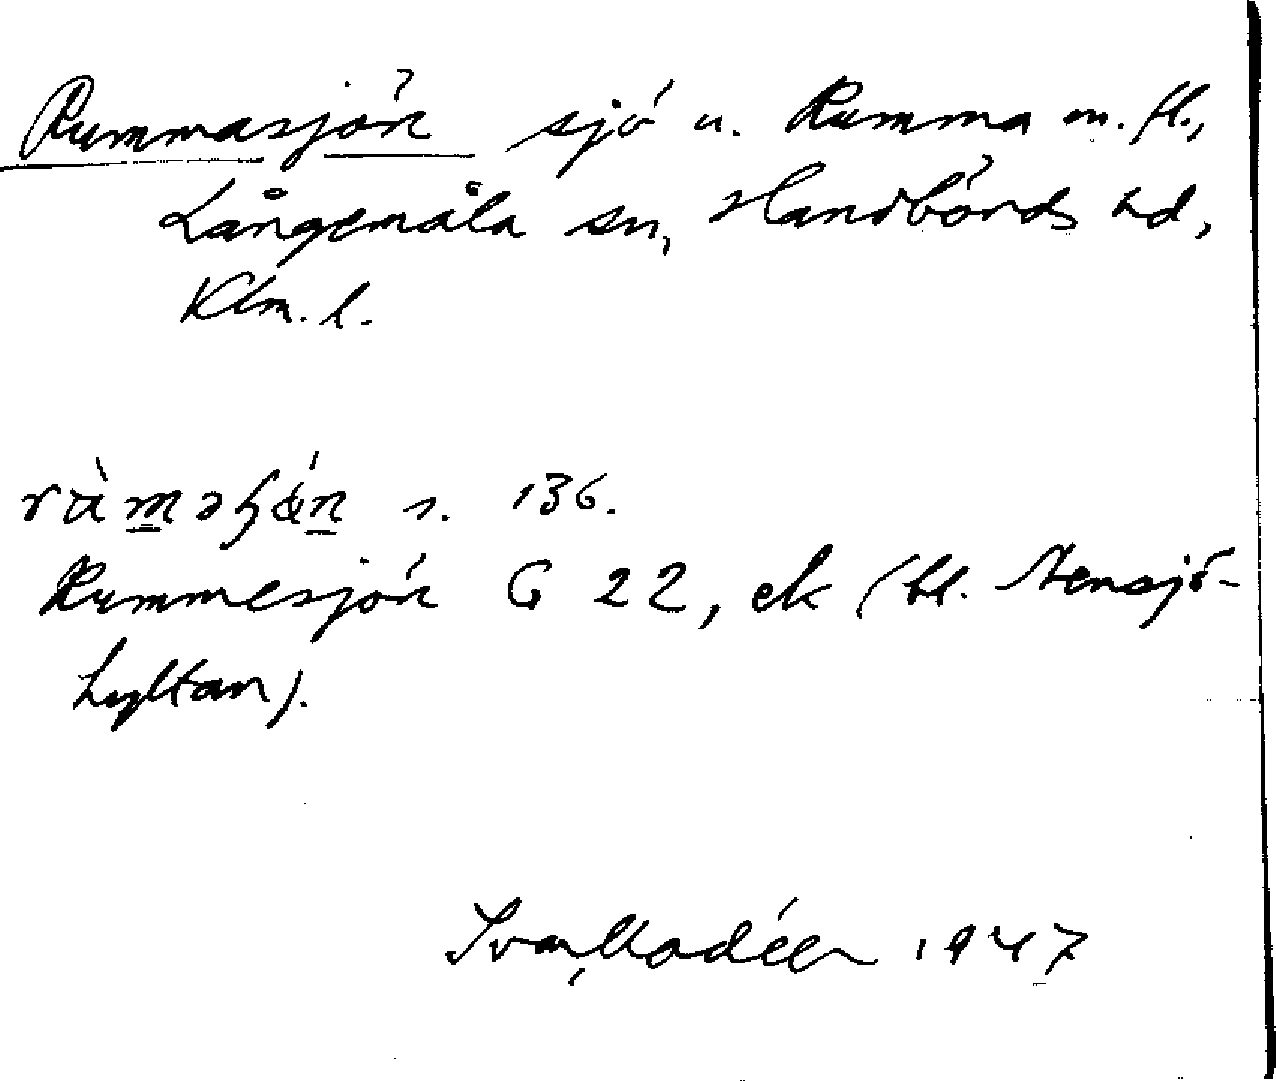 Rummasjön sjö u. Rumma m. fl.,
Långemåla sn, Handbörds hd,
Klm. l.
s. 136.
Rummesjön G 22, ek (bl. Stensjö-
hyltan).
Ivar Modéer 1947